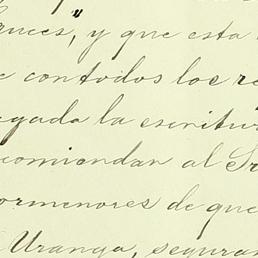 auces," y que esta
e con todos los re
gada la escritu
comiendan al Sr
ormenores de que
Uranga, seguran